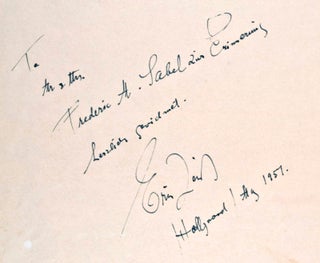 To
Mr & Mrs.
Frederic A. Sabel zur Erinnerung
herzlich gewidmet.
Hollywood / Aug 1951.